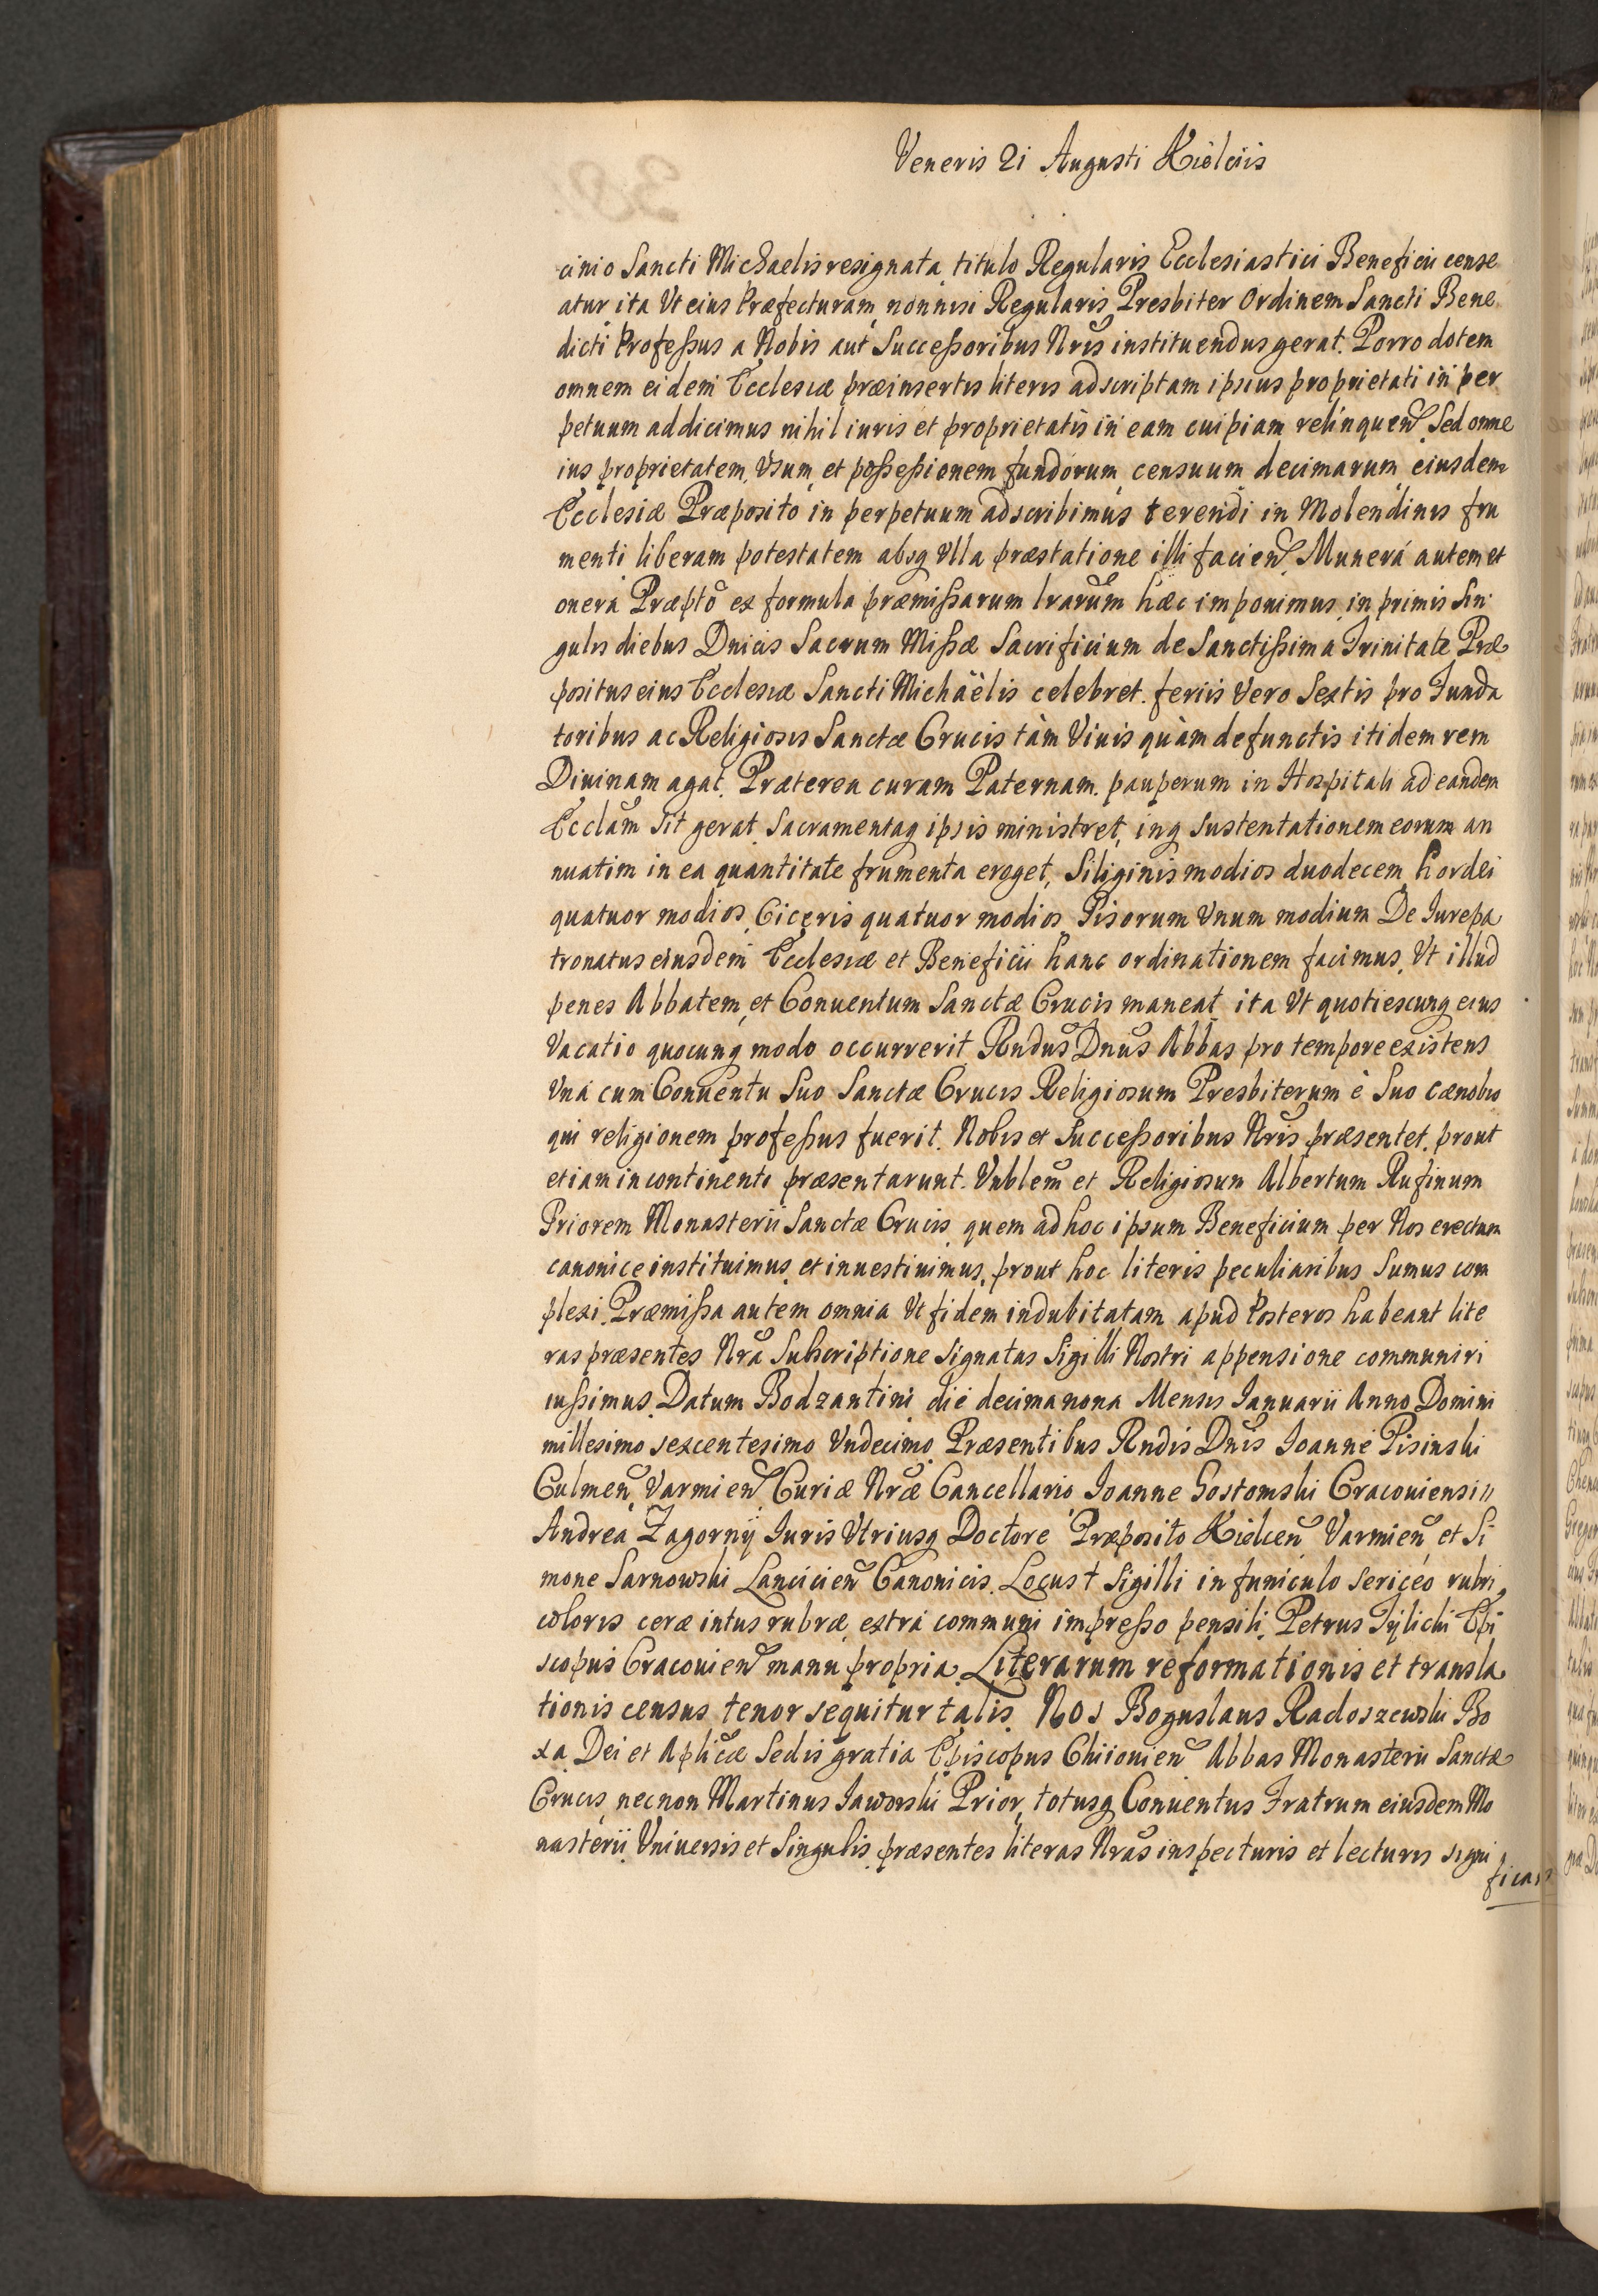 Veneris 21 Augusti Kielciis
cinio Sancti Michaelis resignata titulo Regularis Ecclesiastici Beneficii cense
atur ita Vt eius Præfecturam nonnisi Regularis Presbiter Ordinem Sancti Bene
dicti Professus a Nobis aut Successoribus Nris instituendus gerat. Porro dotem
omnem eidem Ecclesiæ præinsertis literis adscriptam ipsius proprietati in per
petuum addicimus nihil iuris et proprietatis in eam cuipiam relinquen Sed omne
ius proprietatem, Vsum et possessionem fundorum censuum decimarum eiusdem
Ecclesiæ Præposito in perpetuum adscribimus terendi in Molendinis fru
menti liberam potestatem absq Vlla præstatione illi facien. Munera autem et
onera Præpto ex formula præmissarum lrarum hæc imponimus, in primis Sin
gulis diebus Dnicis Sacrum Missæ Sacrificium de Sanctissima Trinitate Præ
positus eius Ecclesiæ Sancti Michaëlis celebret. feriis Vero Sextis pro Funda
toribus ac Religiosis Sanctæ Crucis tàm Viuis quàm defunctis itidem rem
Diuinam agat. Præterea curam Paternam. pauperum in Hospitali ad eandem
Ecclam Sit gerat Sacramentaq ipsis ministret, inq Sustentationem eorum an
nuatim in ea quantitate frumenta eroget, Siliginis modios duodecem hordei
quatuor modios, Ciceris quatuor modios Pisorum Vnum modium De Iurepa
tronatus eiusdem Ecclesiæ et Beneficii hanc ordinationem facimus, Vt illud
penes Abbatem et Conuentum Sanctæ Crucis maneat ita Vt quotiescunq eius
Vacatio quocunq modo occurrerit Rndus Dnus Abbas pro tempore existens
Vna cum Conuentu Suo Sanctæ Crucis Religiosum Presbiterum è Suo cænobio
qui religionem professus fuerit. Nobis et Successoribus Nris præsentet. prout
etiam incontinenti præsentarunt. Vnblem et Religiosum Albertum Rufinum
Priorem Monasterii Sanctæ Crucis quem ad hoc ipsum Beneficium per Nos erectum
canonice instituimus et inuestiuimus, prout hoc literis peculiaribus Sumus com
plexi. Præmissa autem omnia Vt fidem indubitatam apud Posteros habeant lite
ras præsentes Nra Subscriptione Signatas Sigilli Nostri appensione communiri
iussimus. Datum Bodzantini die decimanona Mensis Ianuarii Anno Domini
millesimo sexcentesimo Vndecimo Præsentibus Rndis Dnis Ioanne Pisinski
Culmen Varmien Curiæ Nræ Cancellario Ioanne Gostomski Cracouiensi
Andrea Zagorny Iuris Vtriusq Doctore Præposito Kielcen Varmien et Si
mone Sarnowski Lancicien Canonicis. Locus † Sigilli in funiculo sericeo rubri
coloris ceræ intus rubræ extra communi impresso pensili. Petrus Tylicki Epi
scopus Cracouien manu propria. Literarum reformationis et transla
tionis census tenor sequitur talis. Nos Boguslaus Radoszewski Bo
xa Dei et Aplicæ Sedis gratia Episcopus Chiiouien Abbas Monasterii Sanctæ
Crucis necnon Martinus Jaworski Prior, totusq Conuentus Fratrum eiusdem Mo
nasterii Vniuersis et Singulis præsentes literas Nras inspecturis et lecturis signi